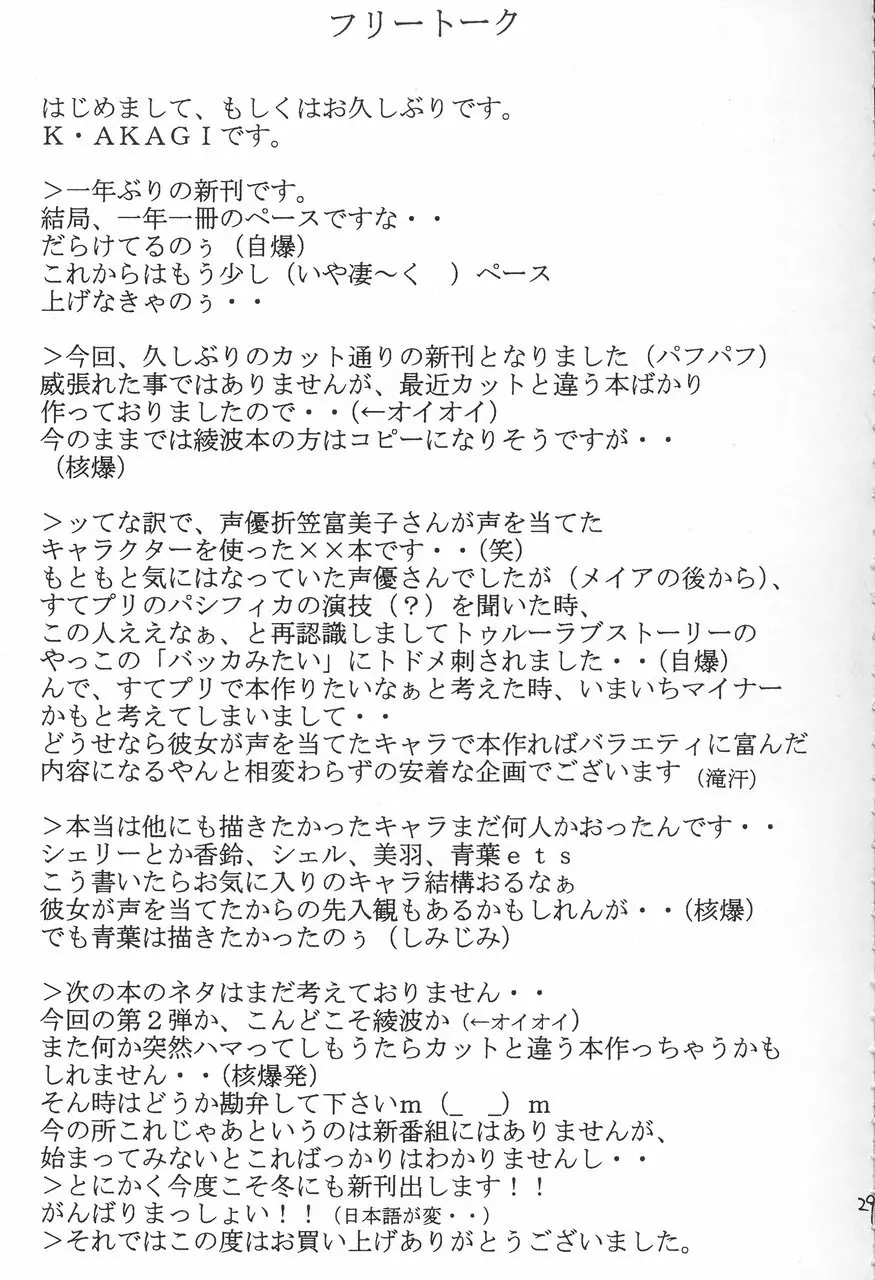 フリートーク
はじめまして、もしくはお久しぶりです。
K・AKAGIです。
>一年ぶりの新刊です。
結局、一年一冊のペースですな・・
だらけてるのぅ（自爆）
これからはもう少し（いや凄～く　）ペース
上げなきゃのぅ・・
>今回、久しぶりのカット通りの新刊となりました（パフパフ）
威張れた事ではありませんが、最近カットと違う本ばかり
作っておりましたので・・（←オイオイ）
今のままでは綾波本の方はコピーになりそうですが・・
（核爆）
>ッてな訳で、声優折笠富美子さんが声を当てた
キャラクターを使った××本です・・（笑）
もともと気にはなっていた声優さんでしたが（メイアの後から）、
すてプリのパシフィカの演技（？）を聞いた時、
この人ええなぁ、と再認識しましてトゥルーラブストーリーの
やっこの「バッカみたい」にトドメ刺されました・・（自爆）
んで、すてプリで本作りたいなぁと考えた時、いまいちマイナー
かもと考えてしまいまして・・
どうせなら彼女が声を当てたキャラで本作ればバラエティに富んだ
内容になるやんと相変わらずの安着な企画でございます（滝汗）
>本当は他にも描きたかったキャラまだ何人かおったんです・・
シェリーとか香鈴、シェル、美羽、青葉ets
こう書いたらお気に入りのキャラ結構おるなぁ
彼女が声を当てたからの先入観もあるかもしれんが・・（核爆）
でも青葉は描きたかったのぅ（しみじみ）
>次の本のネタはまだ考えておりません・・
今回の第２弾か、こんどこそ綾波か（←オイオイ）
また何か突然ハマってしもうたらカットと違う本作っちゃうかも
しれません・・（核爆発）
そん時はどうか勘弁して下さいm（_　_）m
今の所これじゃあというのは新番組にはありませんが、
始まってみないとこればっかりはわかりませんし・・
>とにかく今度こそ冬にも新刊出します！！
がんばりまっしょい！！（日本語が変・・）
>それではこの度はお買い上げありがとうございました。
29